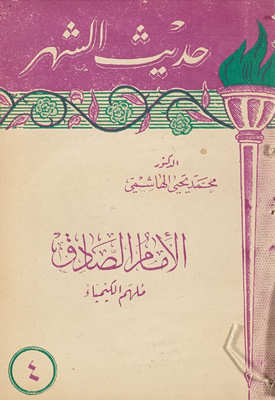 حديث الشهر
الدكتور
محمد يحيى الهاشمي
الإمام الصادق
ملهم الكيمياء
٤